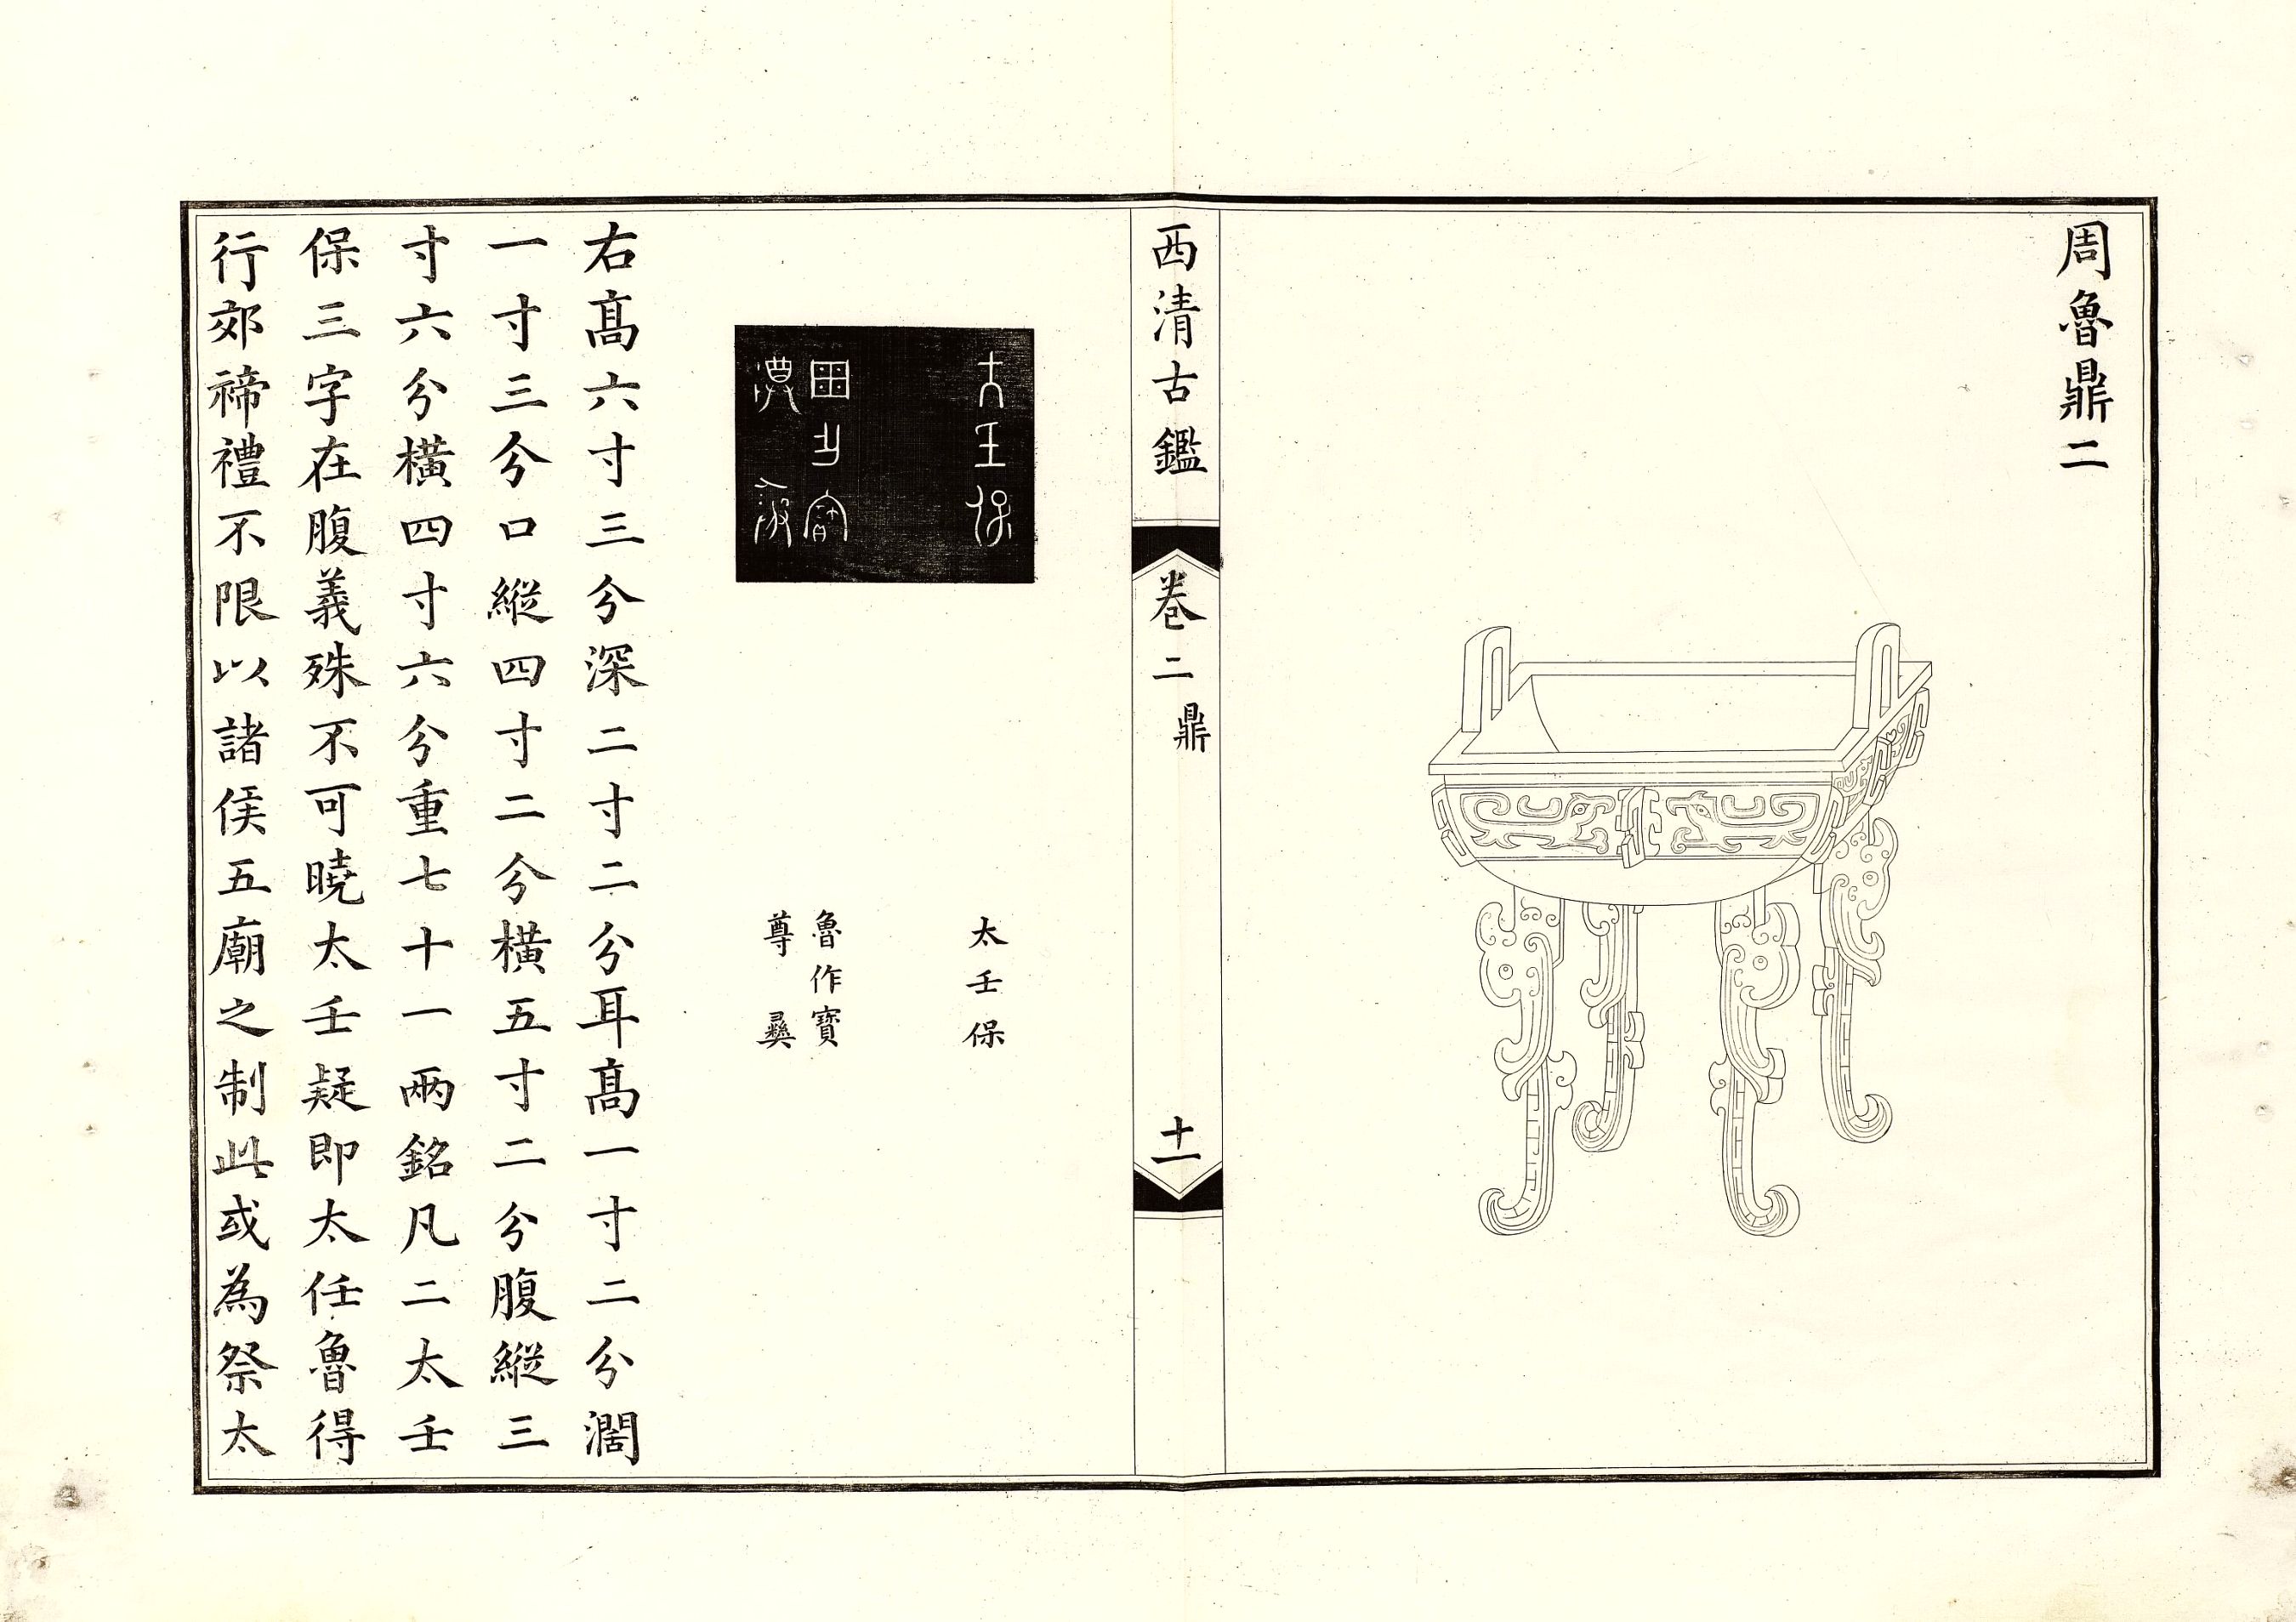 周魯鼎二
西清古鑑
卷二
鼎
十一
太壬保
魯作寶
尊彝
右髙六寸三分深二寸二分耳髙一寸二分濶
一寸三分口縱四寸二分橫五寸二分腹縱三
寸六分橫四寸六分重七十一兩銘凡二太壬
保三字在腹義殊不可曉太壬疑即太任魯得
行郊禘禮不限以諸侯五廟之制此或為祭太